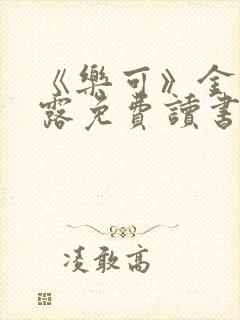 《樂可》金
露免費讀書
凌敢高